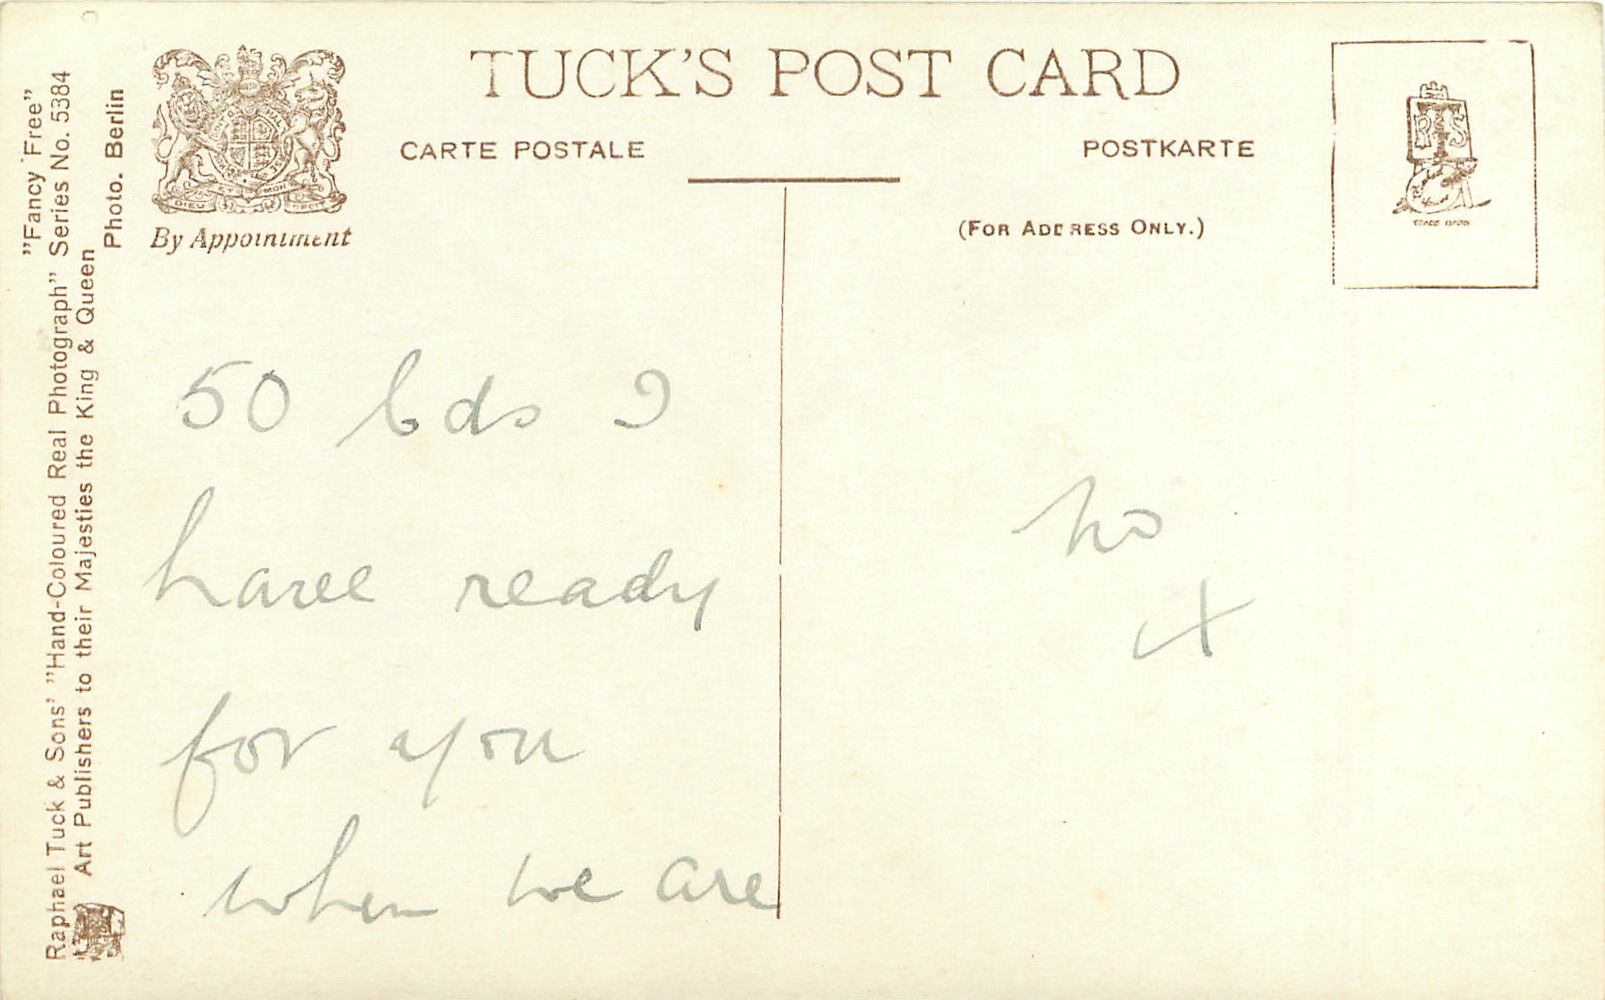 TUCK'S POST CARD
CARTE POSTALE
POSTKARTE
(FOR ADDRESS ONLY.)
By Appointment
"Fancy Free"
Raphael Tuck & Sons' "Hand-Coloured Real Photograph" Series No. 5384
Art Publishers to their Majesties the King & Queen
Photo. Berlin
DIEU ET MON DROIT
RTS
50 cds I
have ready
for you
when we are
no
x